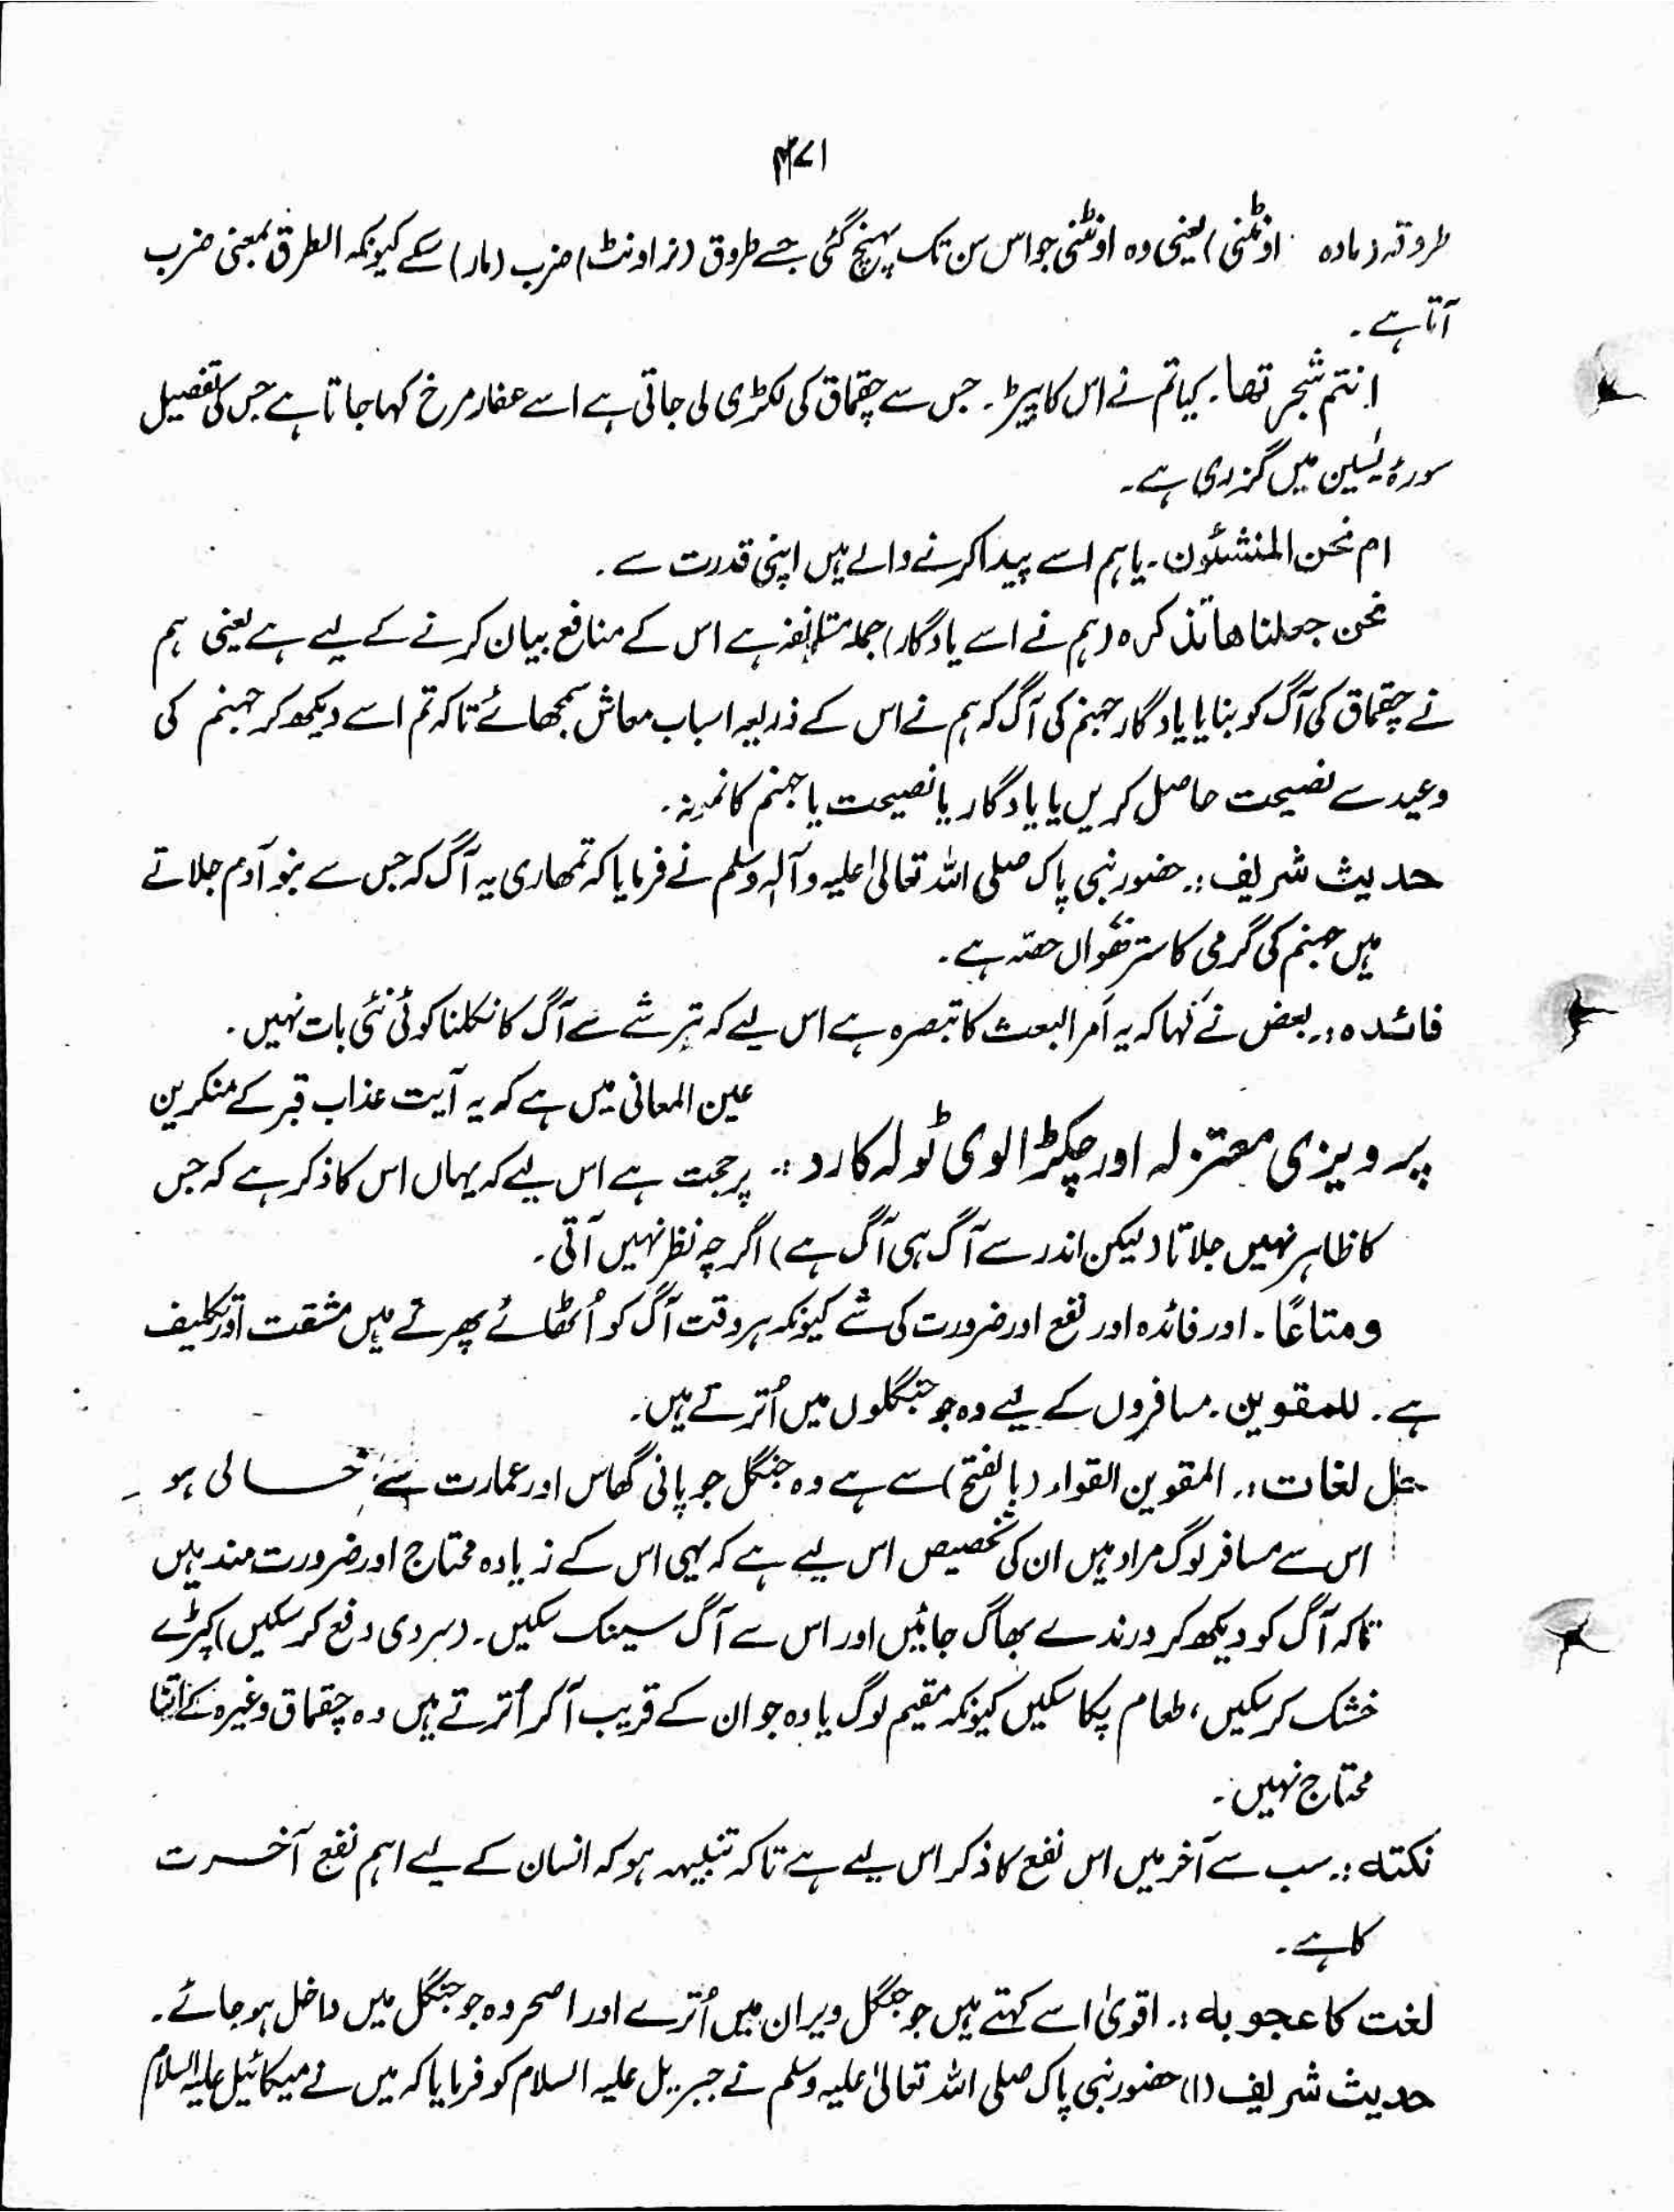 ۴۷۱
طروقہ (مادہ اونٹنی) یعنی وہ اونٹنی جو اس سن تک پہنچ گئی جسے طروق (نر اونٹ) ضرب (مار) سکے کیونکہ الطرق بمعنی ضرب
آتا ہے ۔
انتم شجرتھا ۔ کیا تم نے اس کا پیڑ ۔ جس سے چقماق کی لکڑی لی جاتی ہے اسے عفار مرخ کہا جاتا ہے جس کی تفصیل
سورۂ یٰسین میں گزری ہے ۔
ام نحن المنشئون ۔ یا ہم اسے پیدا کرنے والے ہیں اپنی قدرت سے ۔
نحن جعلناھا تذکرہ (ہم نے اسے یادگار) جملہ مستانفہ ہے اس کے منافع بیان کرنے کے لیے ہے یعنی ہم
نے چقماق کی آگ کو بنایا یادگار جہنم کی آگ کہ ہم نے اس کے ذریعہ اسباب معاش سمجھائے تاکہ تم اسے دیکھ کر جہنم کی
وعید سے نصیحت حاصل کریں یا یادگار یا نصیحت یا جہنم کا نمونہ ۔
حدیث شریف :۔ حضور نبی پاک صلی اللہ تعالیٰ علیہ وآلہ وسلم نے فرمایا کہ تمھاری یہ آگ کہ جس سے بنو آدم جلاتے
ہیں جہنم کی گرمی کا سترھواں حصہ ہے ۔
فائدہ :۔ بعض نے کہا کہ یہ امر البعث کا تبصرہ ہے اس لیے کہ تر شے سے آگ کا نکلنا کوئی نئی بات نہیں ۔
عین المعانی میں ہے کہ یہ آیت عذاب قبر کے منکرین
پرویزی معتزلہ اور چکڑالوی ٹولہ کا رد :۔ پر حجت ہے اس لیے کہ یہاں اس کا ذکر ہے کہ جس
کا ظاہر نہیں جلاتا (لیکن اندر سے آگ ہی آگ ہے) اگرچہ نظر نہیں آتی ۔
ومتاعًا ۔ اور فائدہ اور نفع اور ضرورت کی شے کیونکہ ہر وقت آگ کو اُٹھائے پھرتے میں مشقت اور تکلیف
ہے ۔ للمقوین ۔ مسافروں کے لیے وہ جو جنگلوں میں اُترتے ہیں ۔
حل لغات :۔ المقوین القواء (بالفتح) سے ہے وہ جنگل جو پانی گھاس اور عمارت سے خالی ہو ۔
اس سے مسافر لوگ مراد ہیں ان کی تخصیص اس لیے ہے کہ یہی اس کے زیادہ محتاج اور ضرورت مند ہیں
تاکہ آگ کو دیکھ کر درندے بھاگ جائیں اور اس سے آگ سینک سکیں ۔ (سردی دفع کر سکیں) کپڑے
خشک کر سکیں ، طعام پکا سکیں کیونکہ مقیم لوگ یا وہ جو ان کے قریب آ کر اُترتے ہیں وہ چقماق وغیرہ کے اتنا
محتاج نہیں ۔
نکتہ :۔ سب سے آخر میں اس نفع کا ذکر اس لیے ہے تاکہ تنبیہہ ہو کہ انسان کے لیے اہم نفع آخرت
کا ہے ۔
لغت کا عجوبہ :۔ اقویٰ اسے کہتے ہیں جو جنگل ویران میں اُترے اور اصحر وہ جو جنگل میں داخل ہو جائے ۔
حدیث شریف (۱) حضور نبی پاک صلی اللہ تعالیٰ علیہ وسلم نے جبریل علیہ السلام کو فرمایا کہ میں نے میکائیل علیہ السلام